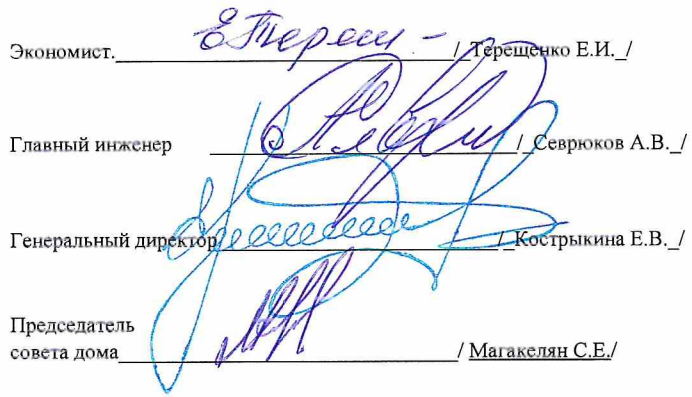 Экономист. / Терещенко Е.И. /
Главный инженер / Севрюков А.В. /
Генеральный директор / Кострыкина Е.В. /
Председатель
совета дома / Магакелян С.Е./